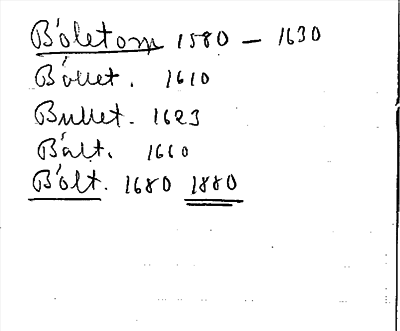 Bóletom 1580 – 1630
Bóllet. 1610
Bullet. 1623
Bált. 1660
Bólt. 1680 1880